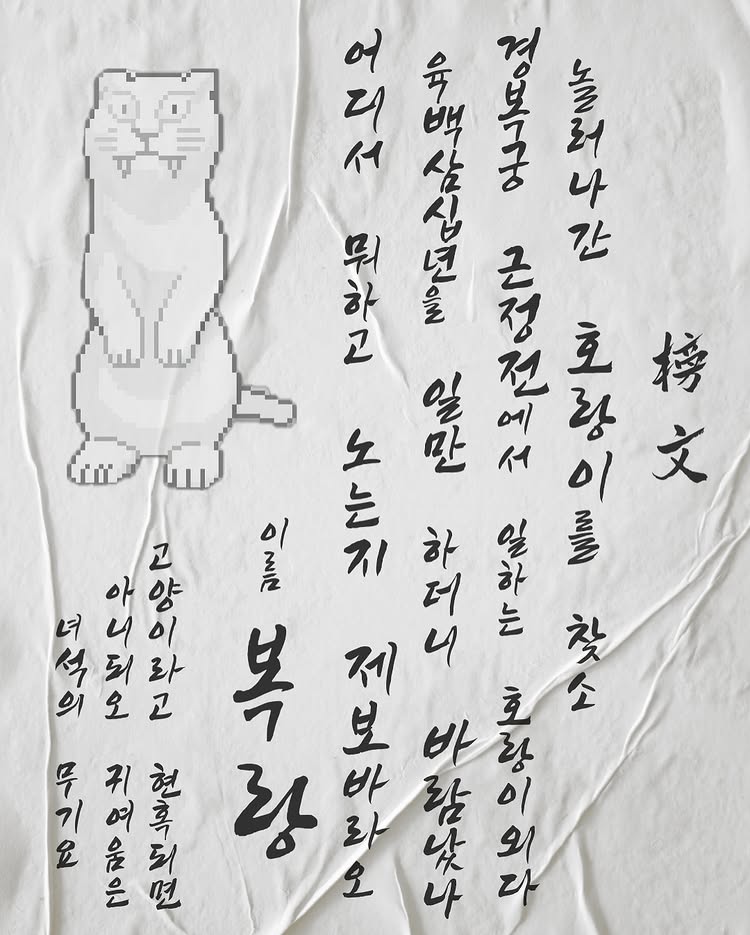 榜文
놀러나간 호랑이를 찾소
경복궁 근정전에서 일하는 호랑이외다
육백삼십년을 일만 하더니 바람났나
어디서 뭐하고 노는지 제보바라오
이름 복랑
고양이라고 현혹되면
아니되오 귀여움은
녀석의 무기요